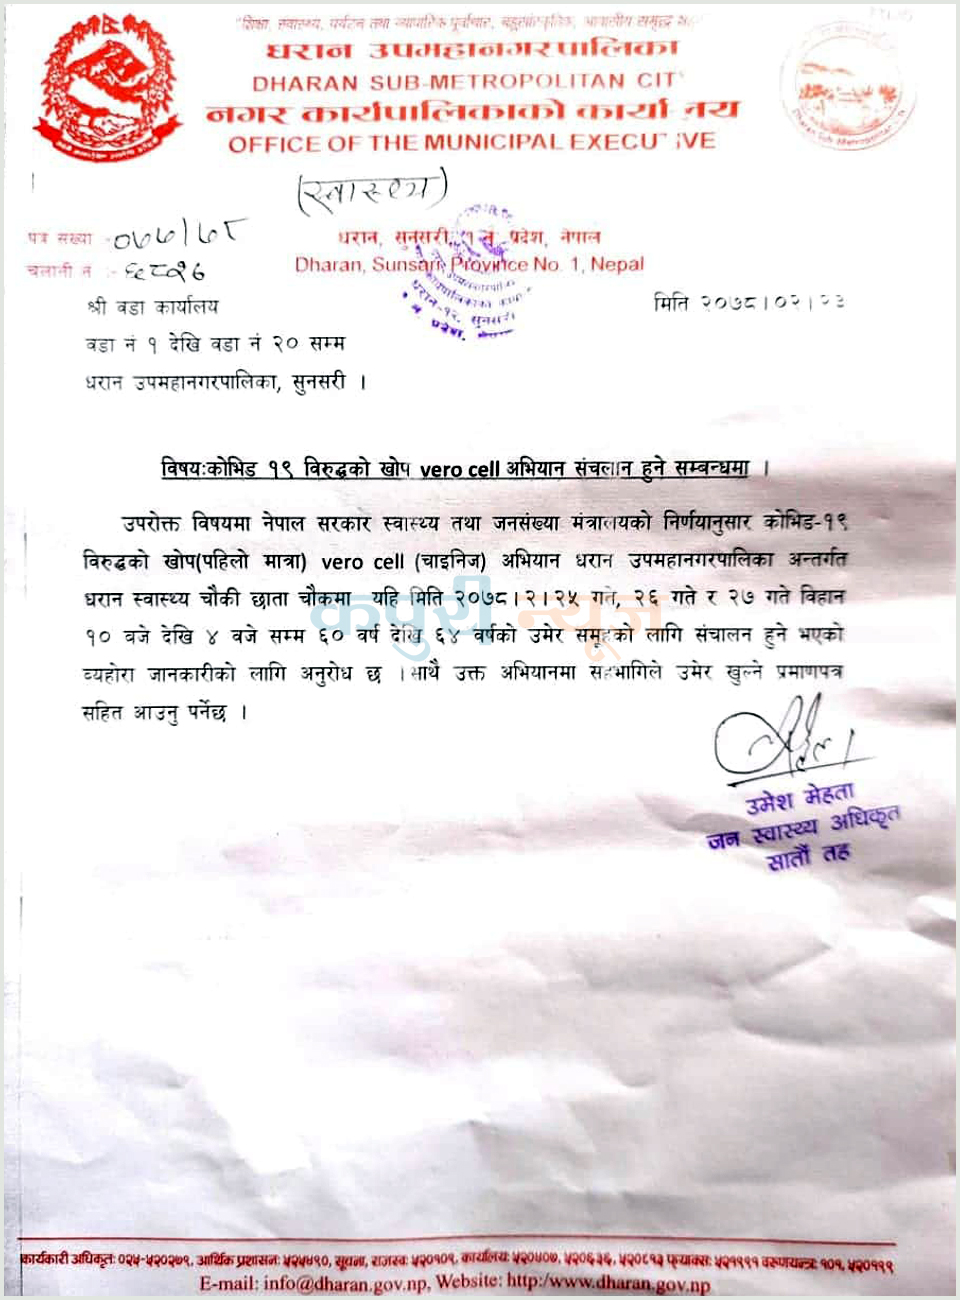 "शिक्षा, स्वास्थ्य, पर्यटन तथा
धरान उपमहानगरपालिका
DHARAN SUB-METROPOLITAN CIT
नगर कार्यपालिकाको कार्या
OFFICE OF THE MUNICIPAL
(स्वास्थ्य)
पत्र संख्या :- ०७७/७८
चलानी न :-
धरान, सुनसरी, १ नं. प्रदेश, नेपाल
Dharan, Sunsari, Province No. 1, Nepal
श्री वडा कार्यालय
मिति २०७८।०२।२३
वडा नं १ देखि वडा नं २० सम्म
धरान उपमहानगरपालिका, सुनसरी ।
विषयःकोभिड १९ विरुद्धको खोप vero cell अभियान संचलान हुने सम्बन्धमा ।
उपरोक्त विषयमा नेपाल सरकार स्वास्थ्य तथा जनसंख्या मंत्रालयको निर्णयानुसार कोभिड-१९
विरुद्धको खोप(पहिलो मात्रा) vero cell (चाइनिज) अभियान धरान उपमहानगरपालिका अन्तर्गत
धरान स्वास्थ्य चौकी छाता चौकमा यहि मिति २०७८।२।२५ गते, २६ गते र २७ गते विहान
१० बजे देखि ४ बजे सम्म ६० वर्ष देखि ६४ वर्षको उमेर समूहको लागि संचालन हुने भएको
व्यहोरा जानकारीको लागि अनुरोध छ ।साथै उक्त अभियानमा सहभागिले उमेर खुल्ने प्रमाणपत्र
सहित आउनु पर्नेछ ।
कपुरी न्यूज
उमेश मेहता
जन स्वास्थ्य अधिकृत
सातौं तह
कार्यकारी अधिकृतः ०२५-५२०२७९, आर्थिक प्रशासनः ५२५५९०, सूचना, राजस्वः ५२०१०९, कार्यालयः ५२०५०७, ५२०६३६, ५२०८१३ फ्याक्सः ५२१९११ वरुणयन्त्रः १०१, ५२०१११
E-mail: info@dharan.gov.np, Website: http:/www.dharan.gov.np